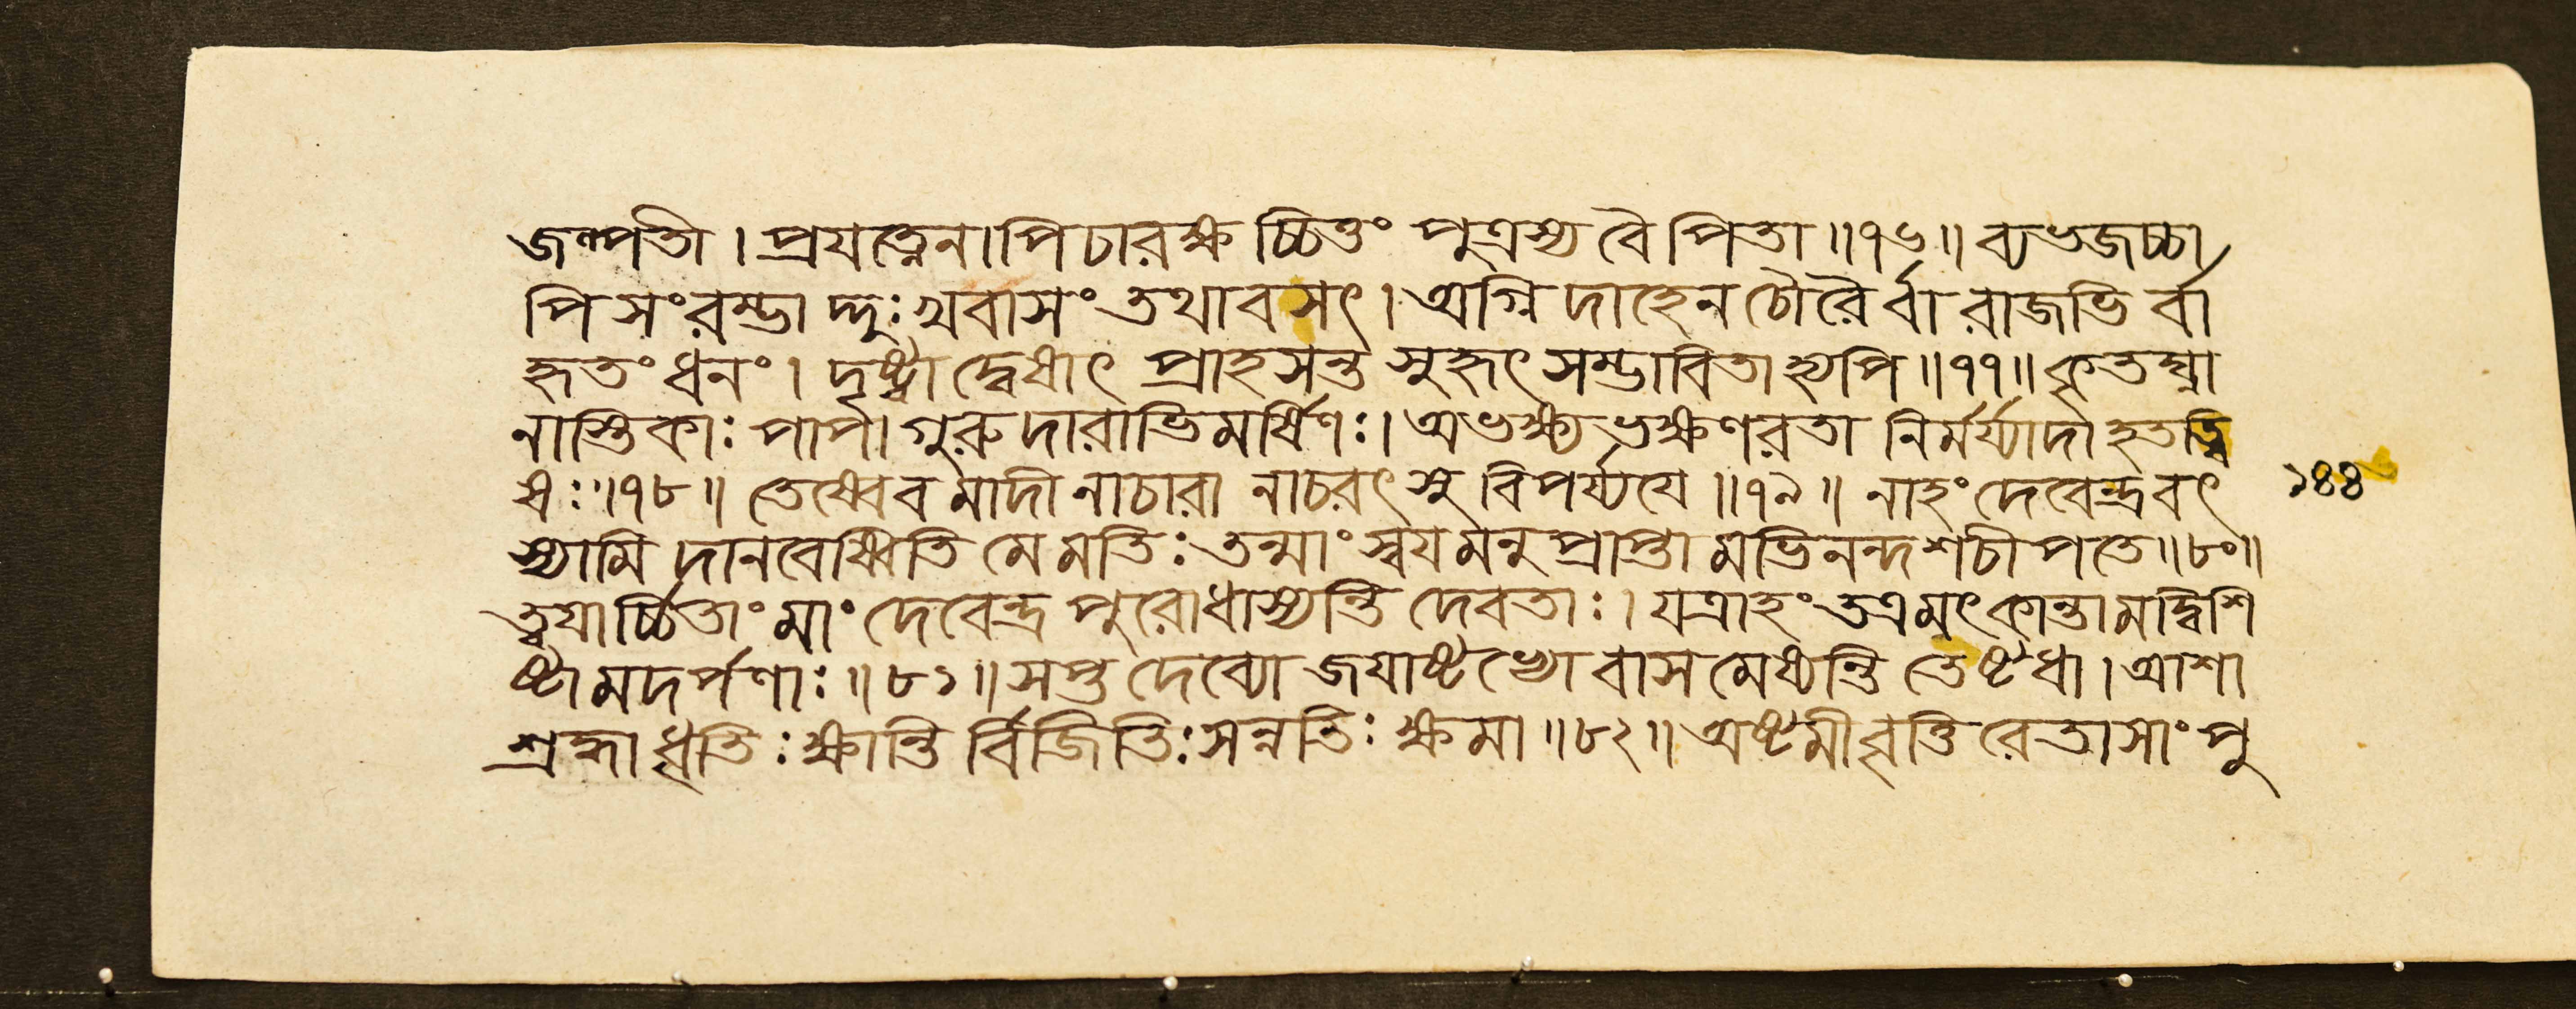 জল্পতী । প্রযত্নেনাপিচারক্ষচ্চিত্তং পুত্রস্য বৈ পিতা ॥৭৬॥ ব্যভজচ্চা
পি সংরম্ভাদ্দুঃখবাসং তথাবসৎ । অগ্নিদাহেন চৌরৈর্বা রাজভির্বা
হৃতং ধনং । দৃষ্ট্বা দ্বেষাৎ প্রাহসন্ত সুহৃৎসম্ভাবিতাহ্যপি ॥৭৭॥ কৃতঘ্না
নাস্তিকাঃ পাপা গুরুদারাভিমর্ষিণঃ । অভক্ষ্যভক্ষণরতা নির্মর্য্যাদা হতত্বি
ষঃ ॥৭৮॥ তেষ্বেবমাদীনাচারানাচরৎসু বিপর্য্যযে ॥৭৯॥ নাহং দেবেন্দ্র বৎ
স্যামি দানবেষ্বিতি মে মতিঃ তন্মাং স্বযমনুপ্রাপ্তামভিনন্দ শচীপতে ॥৮০॥
ত্বযার্চ্চিতাং মাং দেবেন্দ্র পুরোধাস্যন্তি দেবতাঃ । যত্রাহং তত্র মৎকান্তা মদ্বিশি
ষ্টা মদর্পণাঃ ॥৮১॥ সপ্ত দেব্যো জযাষ্টম্যো বাসমেষ্যন্তি তেষ্টধা । আশা
শ্রদ্ধা ধৃতিঃ ক্ষান্তির্বিজিতিঃ সন্নতিঃ ক্ষমা ॥৮২॥ অষ্টমী বৃত্তিরেতাসাং পু
১৪৪